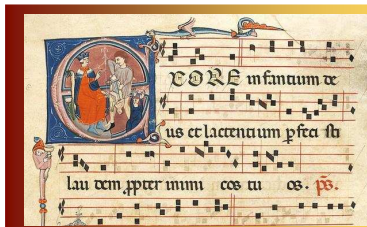 EXORE infantium de
us et lactentium pfeci sti
lau dem. ppter inimi cos tu os. ps.